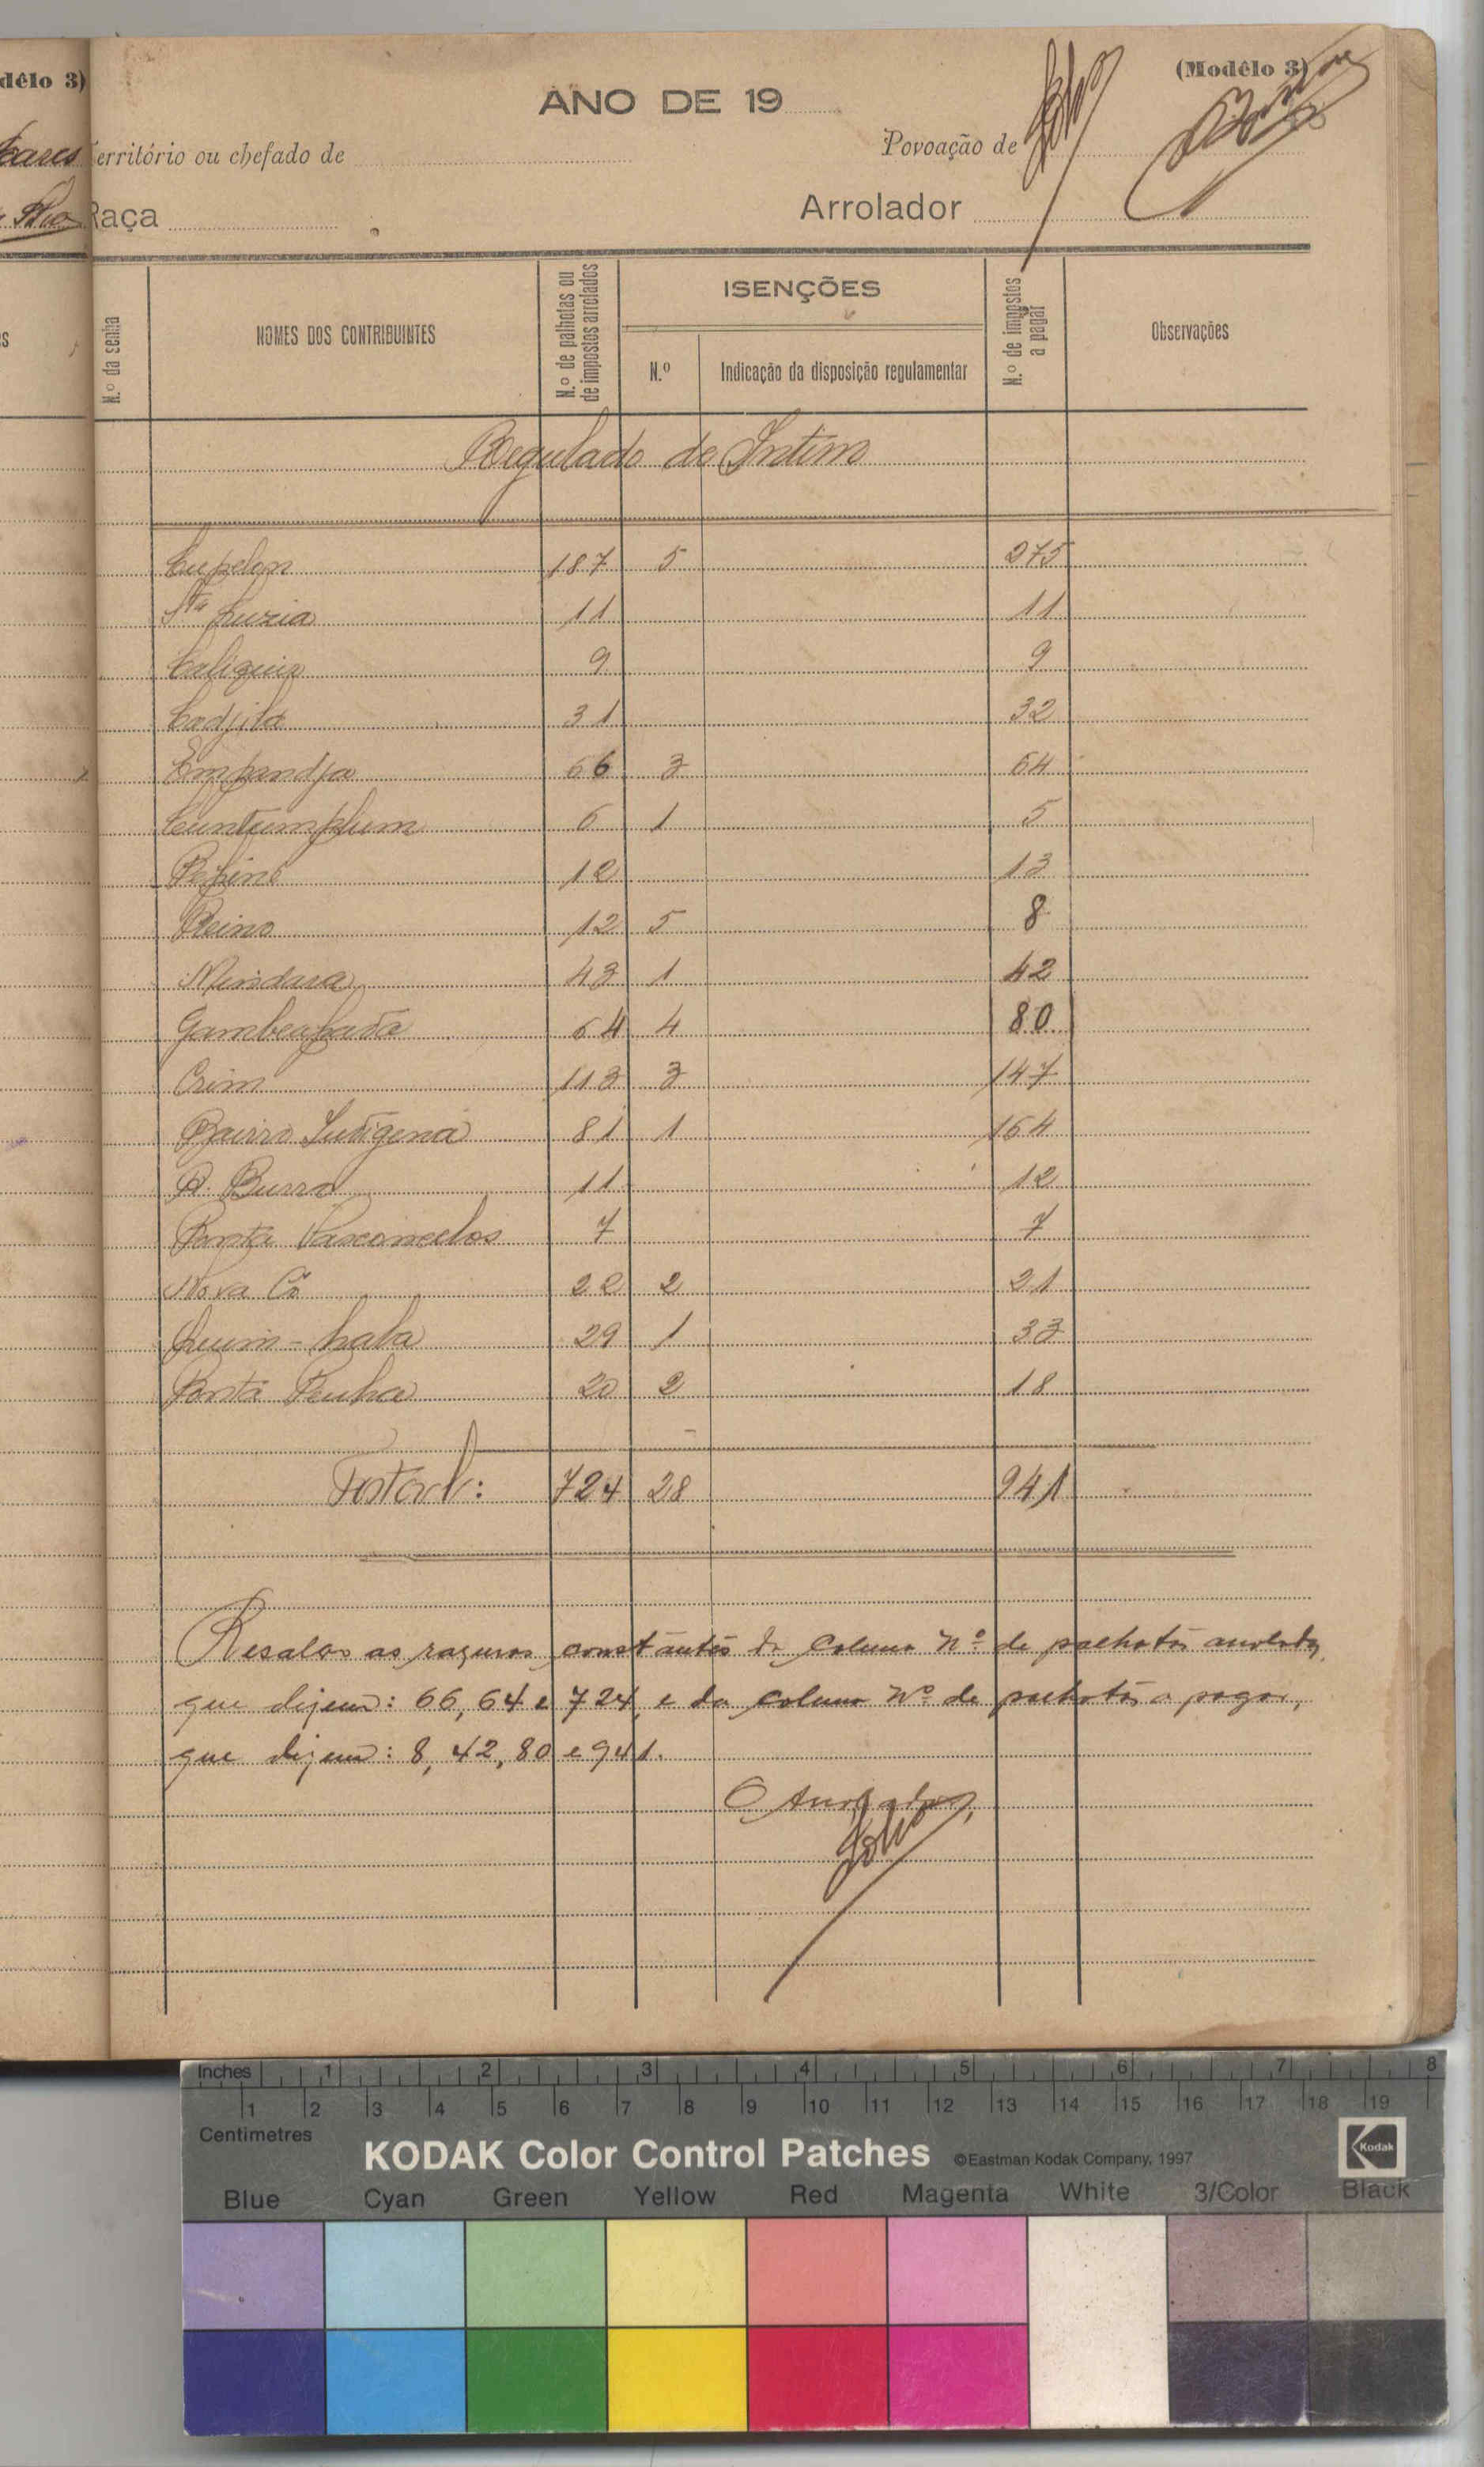 délo 3)
(Modêlo 3)
ANO DE 19
erritório ou chefado de
Povoação de
Raça
Arrolador
N.º da senha
NOMES DOS CONTRIBUINTES
N.º de palhotas ou de impostos arrolados
ISENÇÕES
N.º
Indicação da disposição regulamentar
N.º de impostos a pagar
Observações
Regulado de Intim
Cupelon 187 5 275
Sta Luzia 11 11
9 9
31 32
Empandja 66 3 64
6 1 5
12 13
Reino 12 5 8
Mindara 43 1 42
64 4 80
Crim 113 3 147
Bairro Indigena 81 1 164
B. Burro 11 12
Ponta Vasconcelos 7 7
Nova Cô 22 2 21
29 1 33
Ponta Penha 20 2 18
Total: 724 28 941
Resalvo as razuras constantes da coluna Nº de palhotas arroladas,
que dizem: 66, 64 e 724, e da coluna Nº de palhotas a pagar,
que dizem: 8, 42, 80 e 941.
O Arrolador,
Inches 1 2 3 4 5 6 7 8
1 2 3 4 5 6 7 8 9 10 11 12 13 14 15 16 17 18 19
Centimetres
KODAK Color Control Patches ©Eastman Kodak Company, 1997
Kodak
Blue Cyan Green Yellow Red Magenta White 3/Color Black